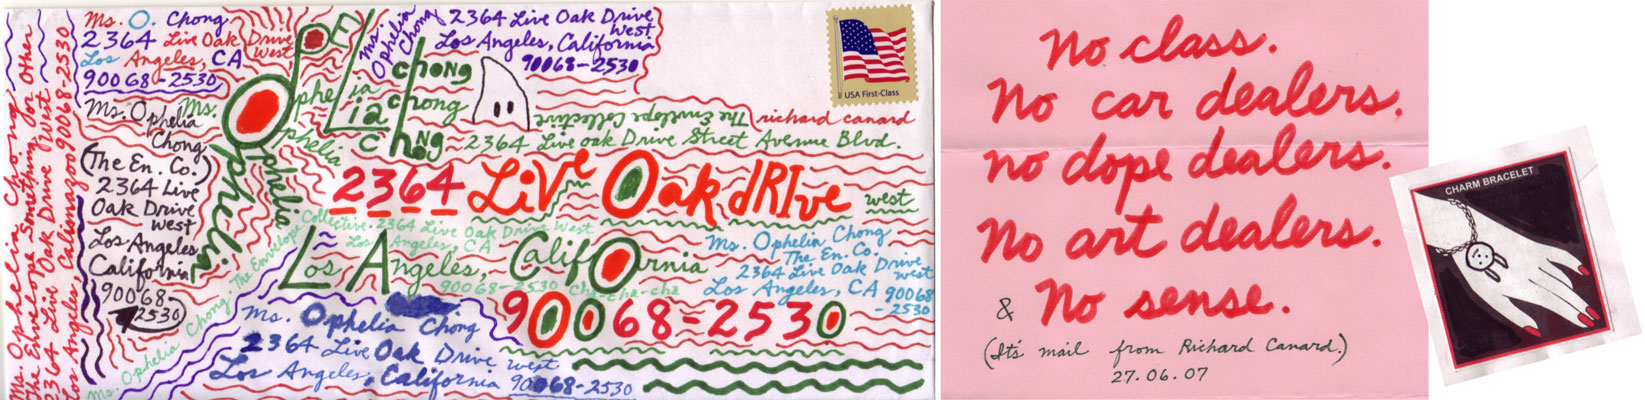 Ms. O. Chong
2364 Live Oak Drive
West
Los Angeles, CA
90068-2530
Ms. Ophelia
Chong
2364 Live Oak Drive
West
Los Angeles, California
90068-2530
USA First-Class
Ms. Ophelia Chong
The Envelope Something or Other
2364 Live Oak Drive West
Los Angeles, Calimzoo 90068-2530
Ms. Ophelia
Chong
(The En. Co.)
2364 Live
Oak Drive
West
Los Angeles
California
90068-
2530
Ms.
Ophelia
Ophelia
Chong
Ophelia
Chong
Ophelia
Chong
The Envelope Collective
richard canard
2364 Live Oak Drive Street Avenue Blvd.
2364 LiVe Oak dRIve
west
Ms. Ophelia Chong - The Envelope Collective. 2364 Live Oak Drive West
Los Angeles, CA
90068-2530 Cha-cha-cha
Los Angeles, California
90068-2530
Ms. Ophelia Chong
The En. Co.
2364 Live Oak Drive
West
Los Angeles, CA 90068
-2530
Ms. Ophelia Chong
2364 Live Oak Drive West
Los Angeles, California 90068-2530
No class.
No car dealers.
no dope dealers.
No art dealers.
& No sense.
(It's mail from Richard Canard.)
27.06.07
CHARM BRACELET